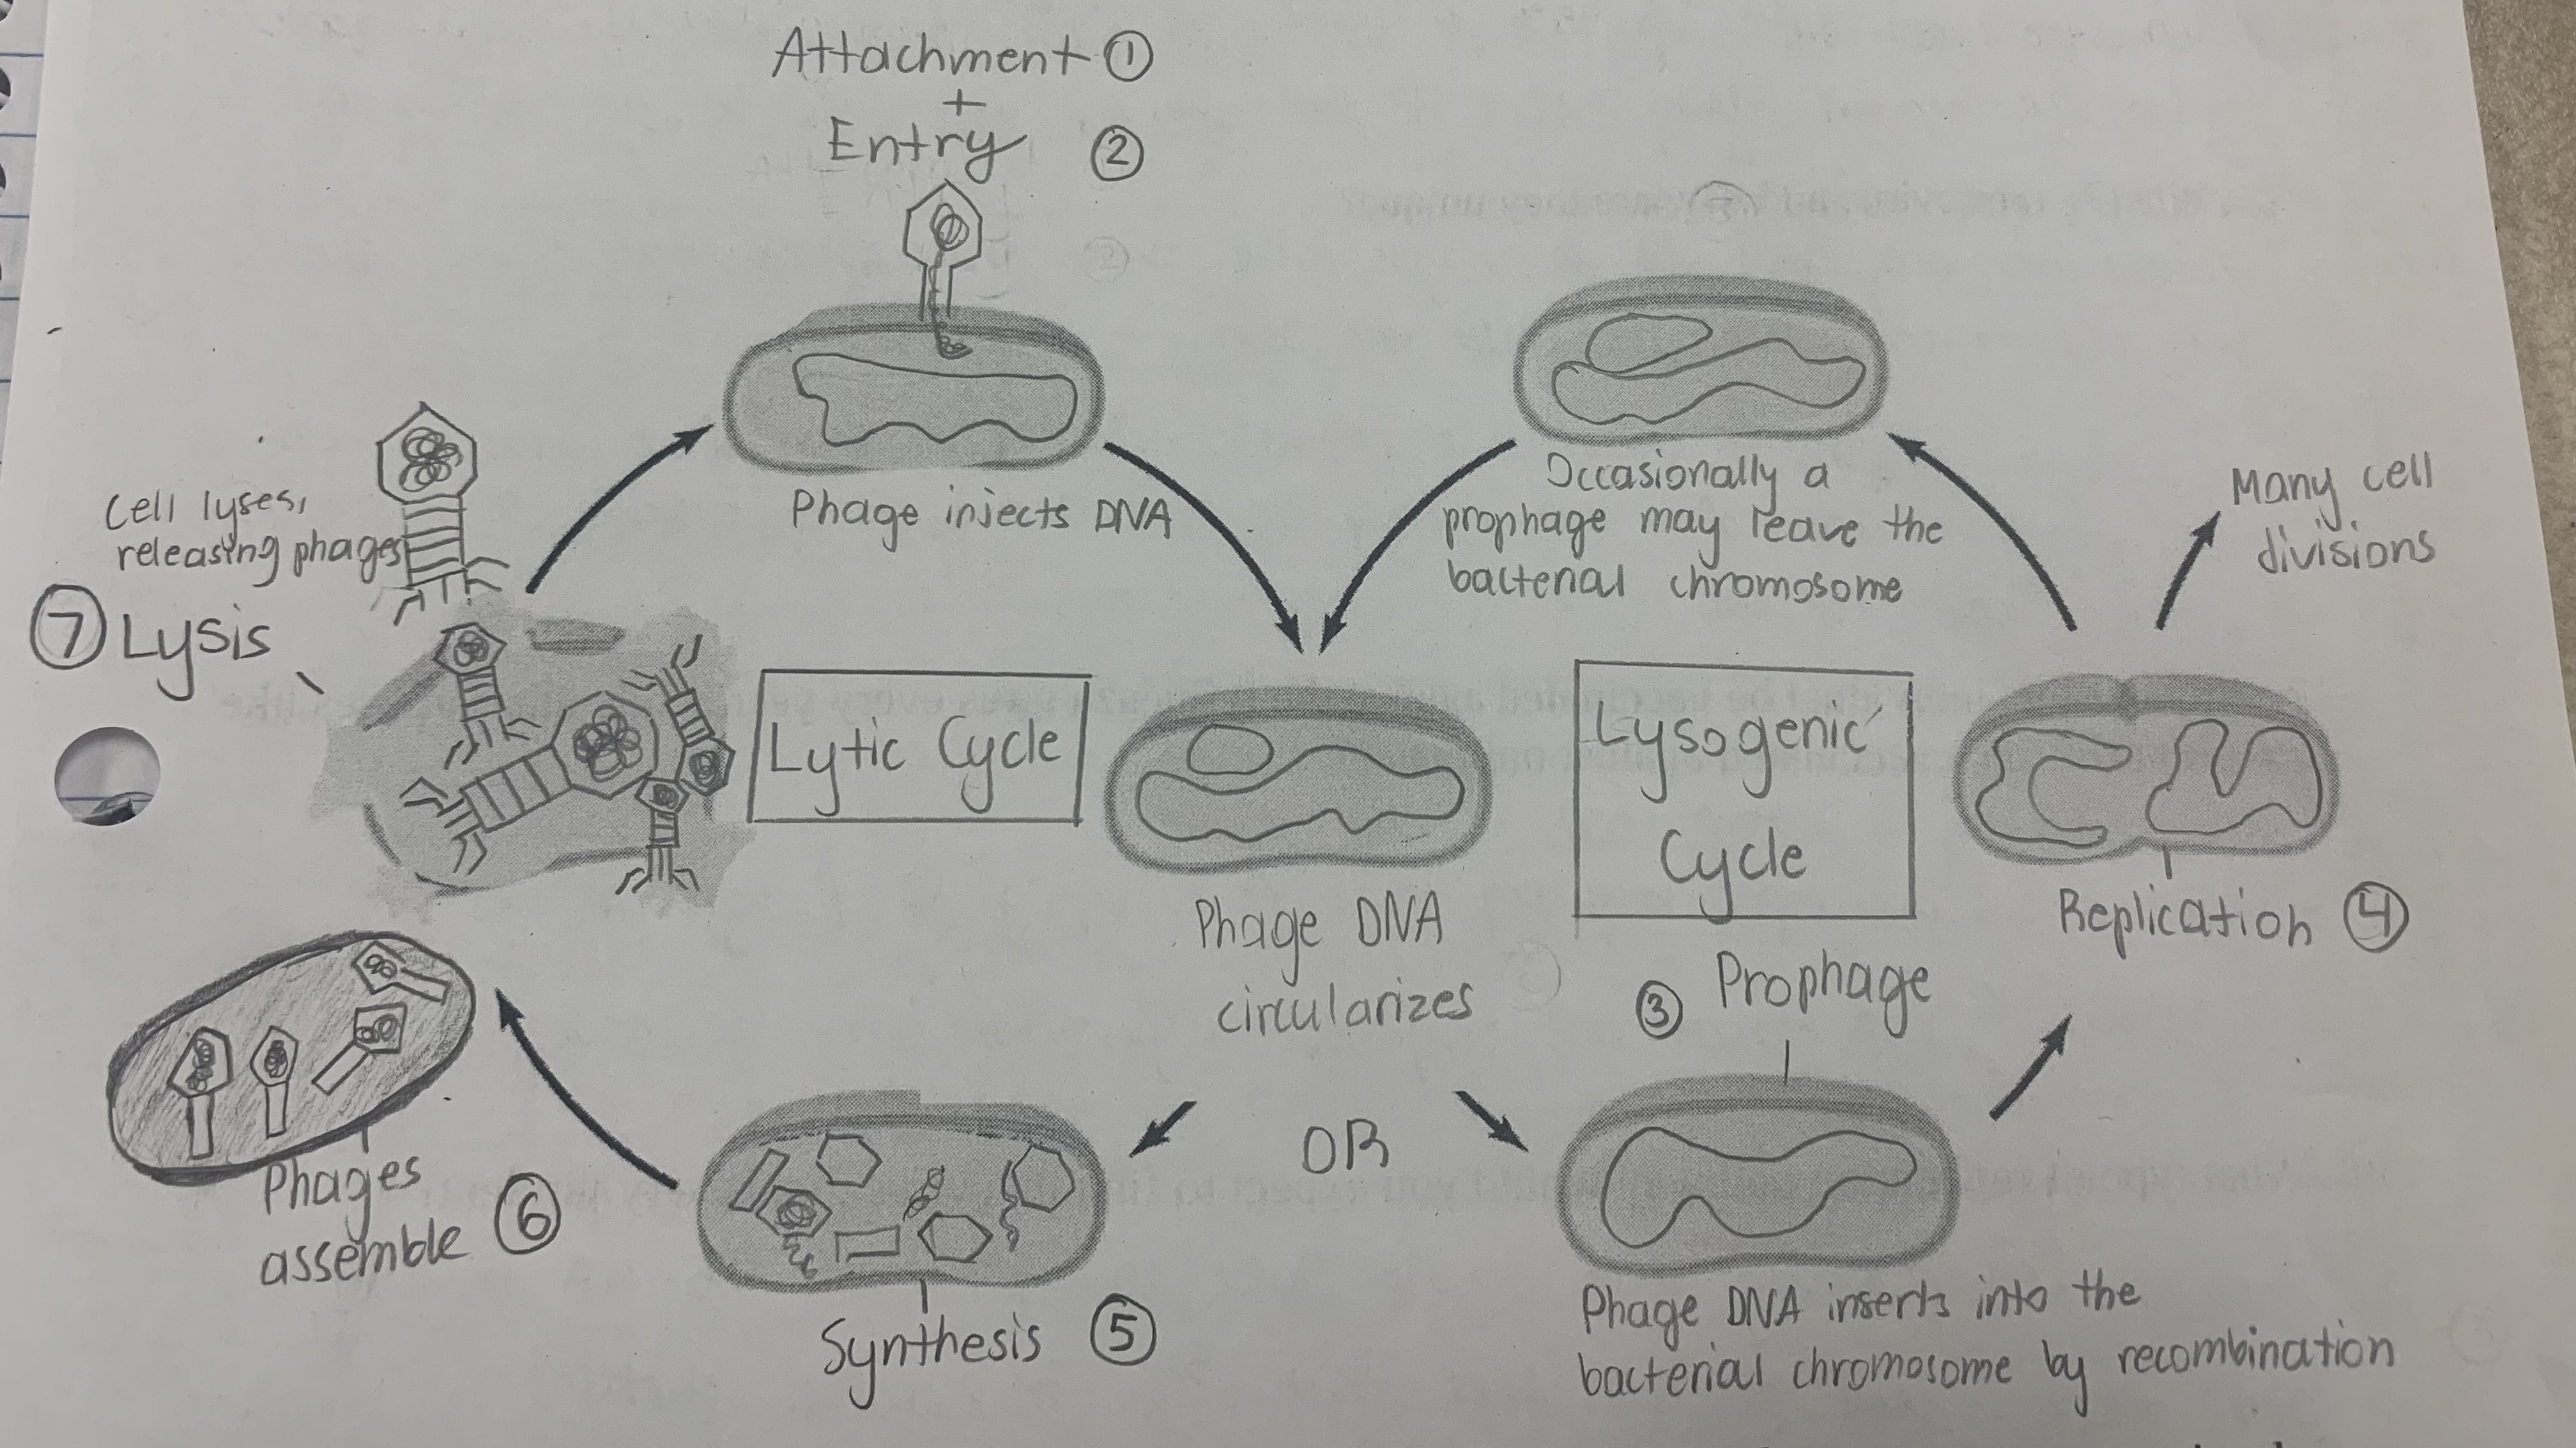 Attachment ①
+
Entry ②
Phage injects DNA
Occasionally a
prophage may leave the
bacterial chromosome
Many cell
divisions
Cell lyses,
releasing phages
⑦ Lysis
Lytic Cycle
Lysogenic
Cycle
Phage DNA
circularizes
Replication ④
③ Prophage
OR
Phages
assemble ⑥
Synthesis ⑤
Phage DNA inserts into the
bacterial chromosome by recombination